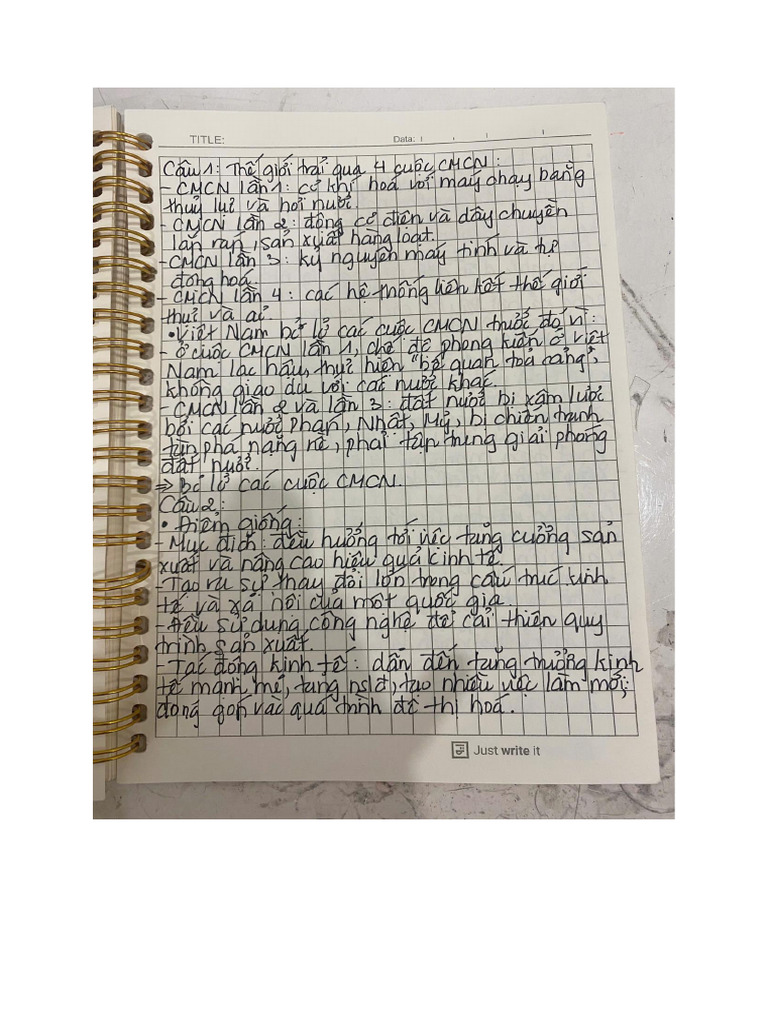 TITLE:
Data:
Câu 1: Thế giới trải qua 4 cuộc CMCN:
- CMCN lần 1: cơ khí hoá với máy chạy bằng
thuỷ lực và hơi nước.
- CMCN lần 2: động cơ điện và dây chuyền
lắp ráp, sản xuất hàng loạt.
- CMCN lần 3: kỷ nguyên máy tính và tự
động hoá.
- CMCN lần 4: các hệ thống liên kết thế giới
thực và ảo.
• Việt Nam bỏ lỡ các cuộc CMCN trước đó vì:
- Ở cuộc CMCN lần 1, chế độ phong kiến ở Việt
Nam lạc hậu, thực hiện "bế quan toả cảng",
không giao du với các nước khác.
- CMCN lần 2 và lần 3: đất nước bị xâm lược
bởi các nước Pháp, Nhật, Mỹ, bị chiến tranh
tàn phá nặng nề, phải tập trung giải phóng
đất nước.
=> Bỏ lỡ các cuộc CMCN.
Câu 2:
• Điểm giống:
- Mục đích: đều hướng tới việc tăng cường sản
xuất và nâng cao hiệu quả kinh tế.
- Tạo ra sự thay đổi lớn trong cấu trúc kinh
tế và xã hội của một quốc gia.
- Đều sử dụng công nghệ để cải thiện quy
trình sản xuất.
- Tác động kinh tế: dẫn đến tăng trưởng kinh
tế mạnh mẽ, tăng nslđ, tạo nhiều việc làm mới;
đóng góp vào quá trình đô thị hoá.
Just write it